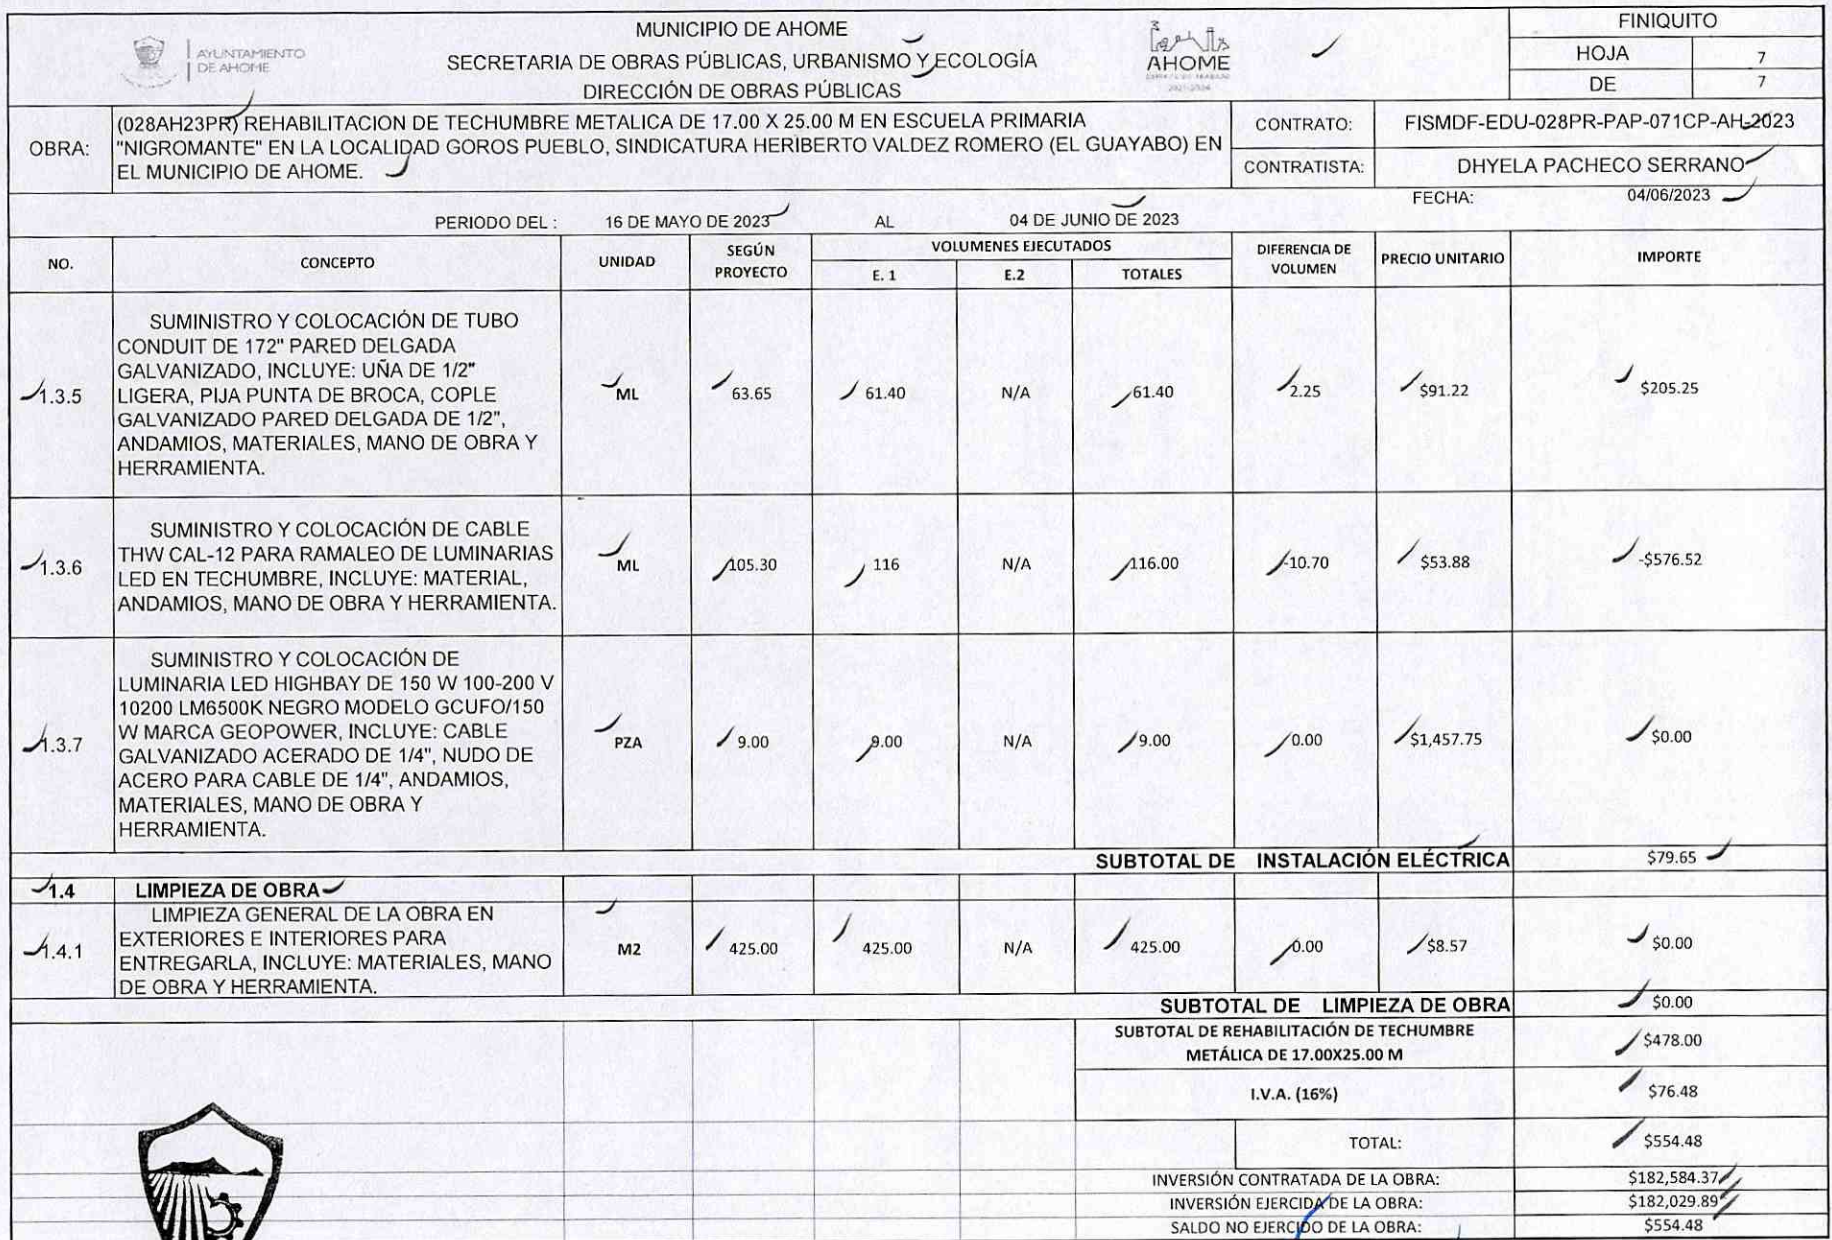 AYUNTAMIENTO
DE AHOME
MUNICIPIO DE AHOME
SECRETARIA DE OBRAS PÚBLICAS, URBANISMO Y ECOLOGÍA
DIRECCIÓN DE OBRAS PÚBLICAS
AHOME
2021-2024
FINIQUITO
HOJA 7
DE 7
OBRA:
(028AH23PR) REHABILITACION DE TECHUMBRE METALICA DE 17.00 X 25.00 M EN ESCUELA PRIMARIA
"NIGROMANTE" EN LA LOCALIDAD GOROS PUEBLO, SINDICATURA HERIBERTO VALDEZ ROMERO (EL GUAYABO) EN
EL MUNICIPIO DE AHOME.
CONTRATO: FISMDF-EDU-028PR-PAP-071CP-AH-2023
CONTRATISTA: DHYELA PACHECO SERRANO
FECHA: 04/06/2023
PERIODO DEL : 16 DE MAYO DE 2023 AL 04 DE JUNIO DE 2023
NO. CONCEPTO UNIDAD SEGÚN PROYECTO VOLUMENES EJECUTADOS DIFERENCIA DE VOLUMEN PRECIO UNITARIO IMPORTE
E. 1 E.2 TOTALES
SUMINISTRO Y COLOCACIÓN DE TUBO
CONDUIT DE 172" PARED DELGADA
GALVANIZADO, INCLUYE: UÑA DE 1/2"
LIGERA, PIJA PUNTA DE BROCA, COPLE
GALVANIZADO PARED DELGADA DE 1/2",
ANDAMIOS, MATERIALES, MANO DE OBRA Y
HERRAMIENTA.
1.3.5 ML 63.65 61.40 N/A 61.40 2.25 $91.22 $205.25
SUMINISTRO Y COLOCACIÓN DE CABLE
THW CAL-12 PARA RAMALEO DE LUMINARIAS
LED EN TECHUMBRE, INCLUYE: MATERIAL,
ANDAMIOS, MANO DE OBRA Y HERRAMIENTA.
1.3.6 ML 105.30 116 N/A 116.00 -10.70 $53.88 -$576.52
SUMINISTRO Y COLOCACIÓN DE
LUMINARIA LED HIGHBAY DE 150 W 100-200 V
10200 LM6500K NEGRO MODELO GCUFO/150
W MARCA GEOPOWER, INCLUYE: CABLE
GALVANIZADO ACERADO DE 1/4", NUDO DE
ACERO PARA CABLE DE 1/4", ANDAMIOS,
MATERIALES, MANO DE OBRA Y
HERRAMIENTA.
1.3.7 PZA 9.00 9.00 N/A 9.00 0.00 $1,457.75 $0.00
SUBTOTAL DE INSTALACIÓN ELÉCTRICA $79.65
1.4 LIMPIEZA DE OBRA
LIMPIEZA GENERAL DE LA OBRA EN
EXTERIORES E INTERIORES PARA
ENTREGARLA, INCLUYE: MATERIALES, MANO
DE OBRA Y HERRAMIENTA.
1.4.1 M2 425.00 425.00 N/A 425.00 0.00 $8.57 $0.00
SUBTOTAL DE LIMPIEZA DE OBRA $0.00
SUBTOTAL DE REHABILITACIÓN DE TECHUMBRE
METÁLICA DE 17.00X25.00 M $478.00
I.V.A. (16%) $76.48
TOTAL: $554.48
INVERSIÓN CONTRATADA DE LA OBRA: $182,584.37
INVERSIÓN EJERCIDA DE LA OBRA: $182,029.89
SALDO NO EJERCIDO DE LA OBRA: $554.48